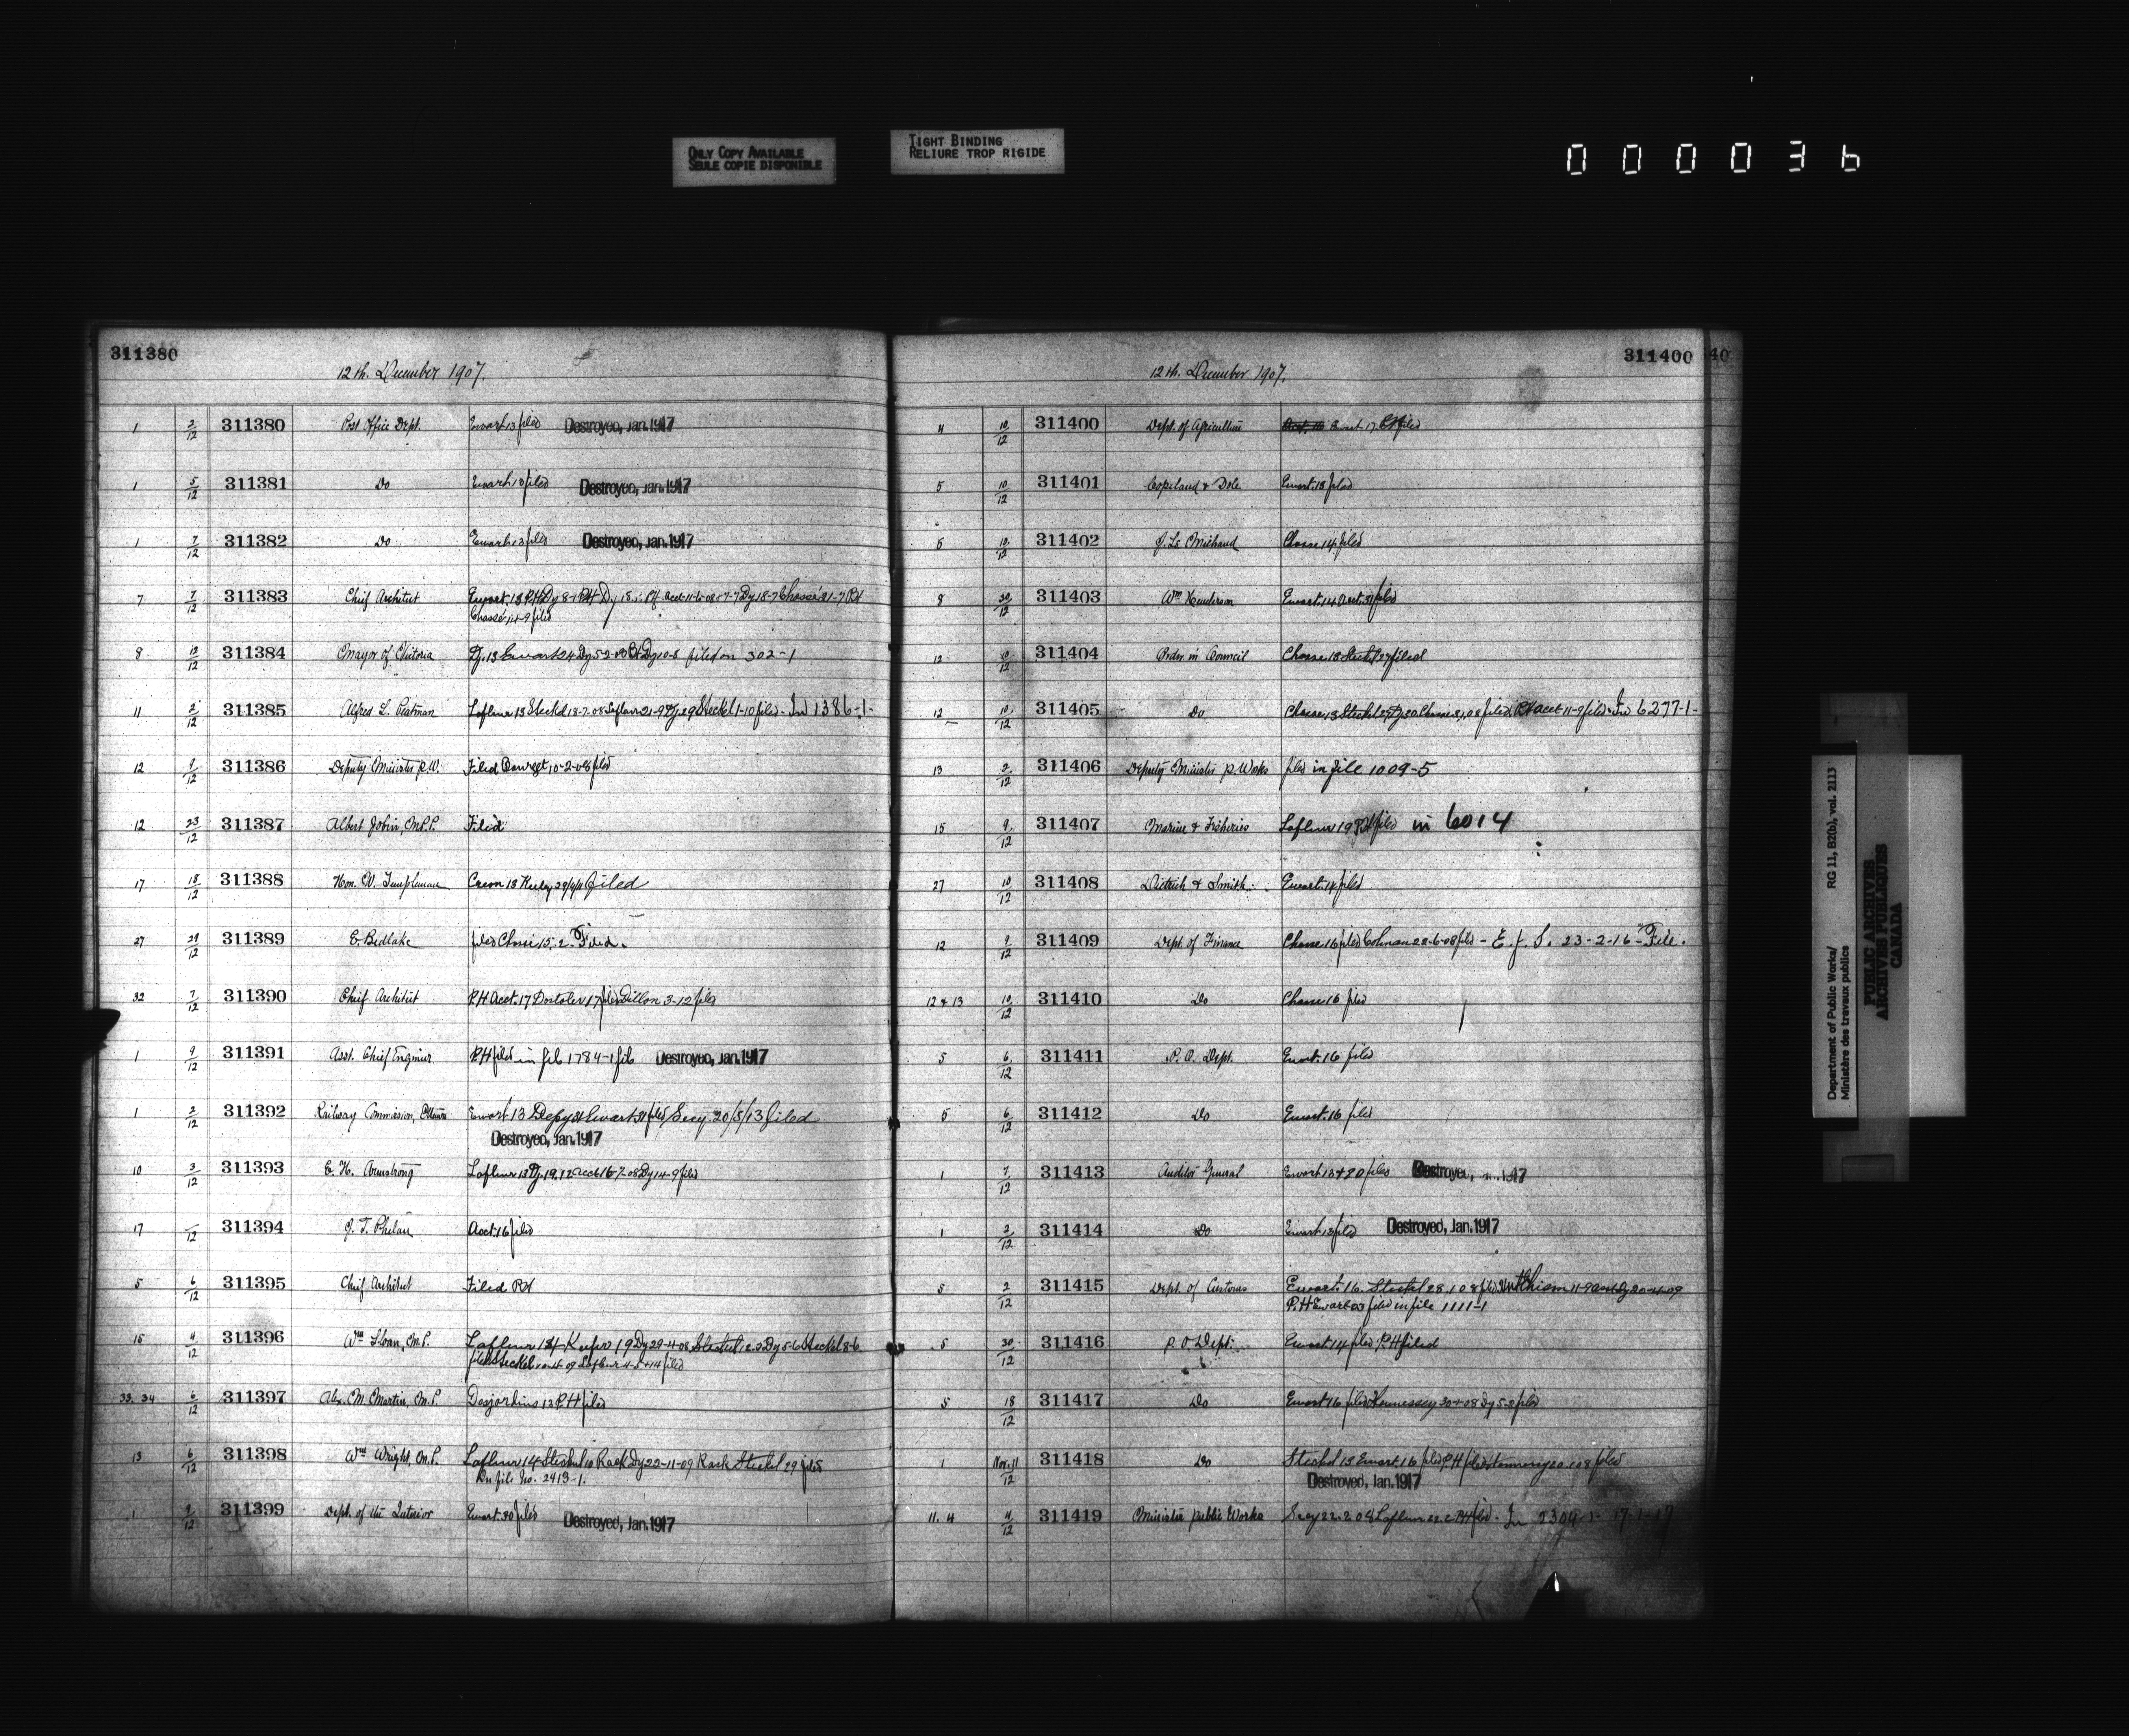 ONLY COPY AVAILABLE
SEULE COPIE DISPONIBLE
TIGHT BINDING
RELIURE TROP RIGIDE
000036
311380
12th. December 1907.
1 2/12 311380 Post Office Dept. Ewart 13 filed Destroyed, Jan. 1917
1 5/12 311381 Do Ewart 13 filed Destroyed, Jan. 1917
1 7/12 311382 Do Ewart 13 filed Destroyed, Jan. 1917
7 7/12 311383 Chief Architect Ewart 13
Chasse 14-9 filed
8 10/12 311384 Mayor of filed on 302-1
11 2/12 311385 Alfred L. Lafleur 13 Steckel 18-7-08 Lafleur 21-9 Dy. 29 Steckel 1-10 filed - In 1386-1-
12 9/12 311386 Deputy Minister P.W. Filed 10-2-08 filed
12 23/12 311387 Albert Jobin, M.P.P. Filed
17 18/12 311388 Hon. W. Templeman filed
27 29/12 311389 E. Bedlake filed Chasse 15. 2. Filed.
32 7/12 311390 Chief Architect P.H Acct. 17 17 filed Dillon 3-12 filed
1 9/12 311391 Asst. Chief Engineer P.H filed in file 1784-1 file Destroyed, Jan. 1917
1 2/12 311392 Railway Commission, Ottawa Ewart 13 Ewart 31 filed Secy. 20/5/13 filed
Destroyed, Jan. 1917
10 3/12 311393 E. H. Armstrong Lafleur 13 Dy. 19. 12 acct 16-7-08 Dy 14-9 filed
17 /12 311394 J. T. Phelan Acct. 16 filed
5 6/12 311395 Chief Architect Filed P.H
15 4/12 311396 Wm Sloan, M.P. Lafleur 19 Dy 29-4-08 Steckel Dy 5-6 Steckel 8-6
filed Steckel
33. 34 6/12 311397 Alex. M. Martin, M.P. Desjardins 13 P.H filed
13 6/12 311398 Wm Wright, M.P. Lafleur 14 Steckel 10 Rack Dy 22-11-09 Rack Steckel 29 filed
On file No. 2413-1.
1 2/12 311399 Dept. of the Interior Ewart 20 filed Destroyed, Jan. 1917
311400
40
12th. December 1907.
4 10/12 311400 Dept. of Agriculture Ewart 17. filed
5 10/12 311401 Copeland & Dole Ewart 18 filed
6 10/12 311402 J. Ls Michaud Chasse 14 filed
8 30/12 311403 Wm Henderson Ewart 14 acct. 31 filed
12 10/12 311404 Order in Council Chasse 18 Steckel 27 filed
12 10/12 311405 Do Chasse 13 Steckel filed P.H acct 11-9 filed - In 6277-1-
13 2/12 311406 Deputy Minister P. Works filed in file 1009-5
15 9/12 311407 Marine & Fisheries Lafleur 19 P.H filed in 6014
27 10/12 311408 Dietrich & Smith Ewart 14 filed
12 9/12 311409 Dept. of Finance Chasse 16 filed Colman 22-6-08 filed - E. J. S. 23-2-16 - File.
12 & 13 10/12 311410 Do Chasse 16 filed
5 6/12 311411 P. O. Dept. Ewart. 16 filed
5 6/12 311412 Do Ewart. 16 filed
1 7/12 311413 Auditor General Ewart 13 & 20 filed Destroyed, 1917
1 2/12 311414 Do Ewart 13 filed Destroyed, Jan. 1917
5 2/12 311415 Dept. of Customs Ewart. 16. Steckel 28. 1 08 filed Hutchison 11-9 Dy 20-4-09
P.H Ewart 23 filed in file 1111-1
5 30/12 311416 P. O. Dept. Ewart 14 filed P.H filed
5 18/12 311417 Do Ewart 16 filed Hennessey Dy 5-2 filed
1 Nov. 11/12 311418 Do Steckel 13 Ewart 16 filed P.H filed Hennessey 20.1.08 filed
Destroyed, Jan. 1917
11. 4 4/12 311419 Minister Public Works Secy 22. 2. 08 Lafleur filed - In 17-1-17
Department of Public Works/
Ministère des travaux publics
RG 11, B2(b), vol. 2113
PUBLIC ARCHIVES
ARCHIVES PUBLIQUES
CANADA